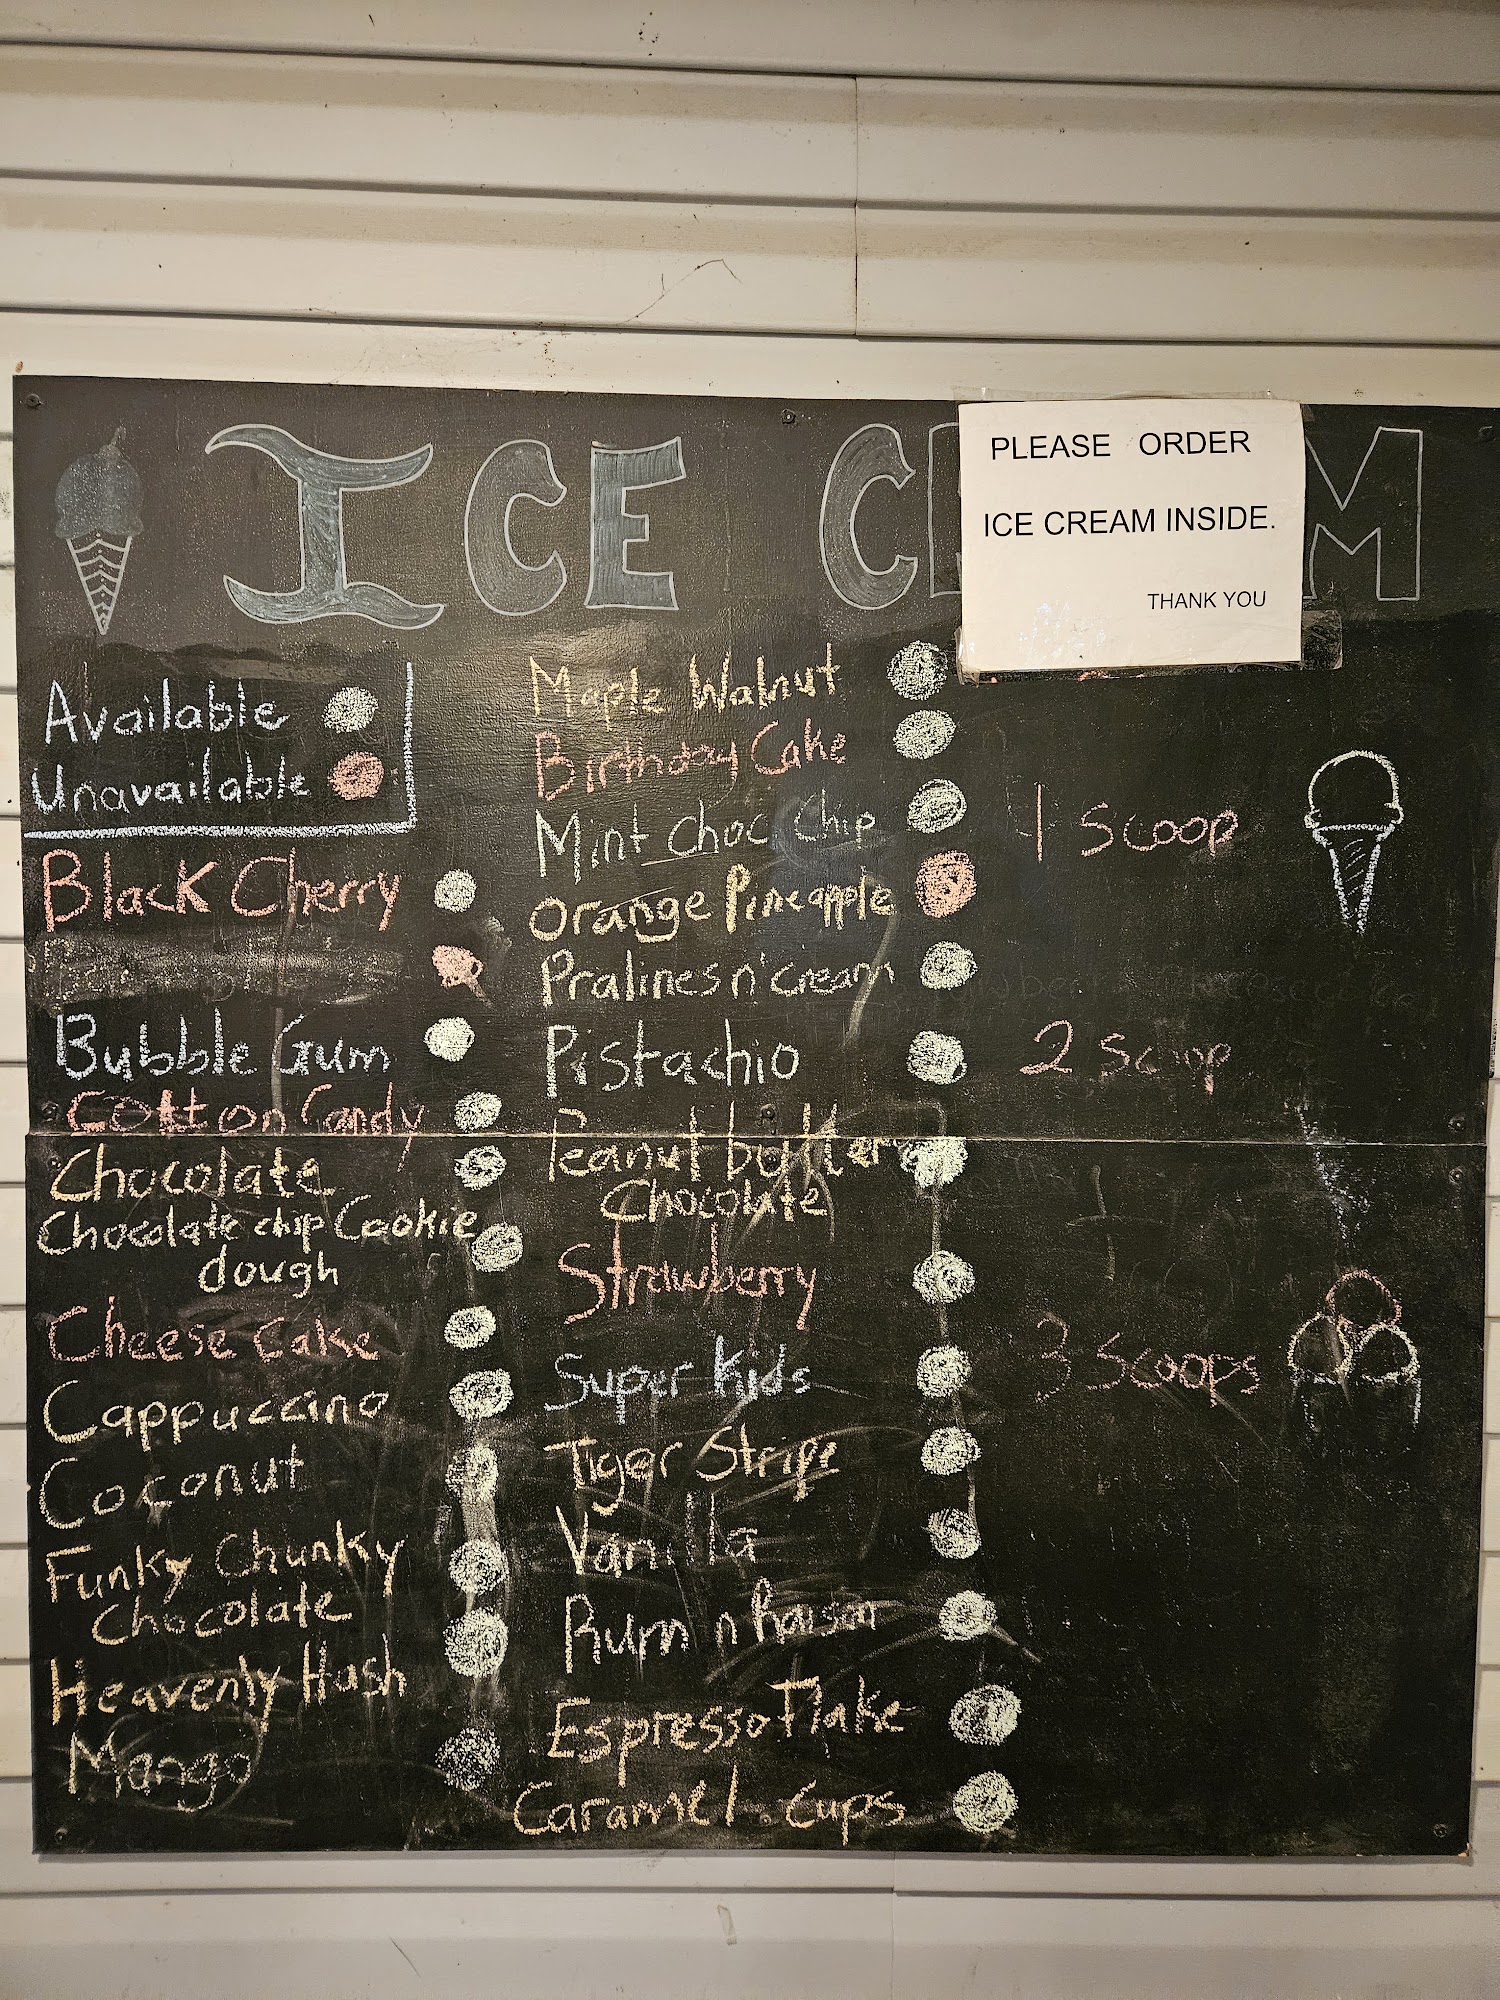 ICE C M
PLEASE ORDER
ICE CREAM INSIDE.
THANK YOU
Available
Unavailable
Black Cherry
Bubble Gum
Cotton Candy
Chocolate
Chocolate chip Cookie
dough
Cheese Cake
Cappuccino
Coconut
Funky Chunky
Chocolate
Heavenly Hash
Mango
Maple Walnut
Birthday Cake
Mint Choc Chip
Orange Pineapple
Pralines n' cream
Pistachio
Peanut butter
Chocolate
Strawberry
Super Kids
Tiger Stripe
Vanilla
Rum n Raisin
Espresso Flake
Caramel cups
1 Scoop
2 Scoop
3 Scoops